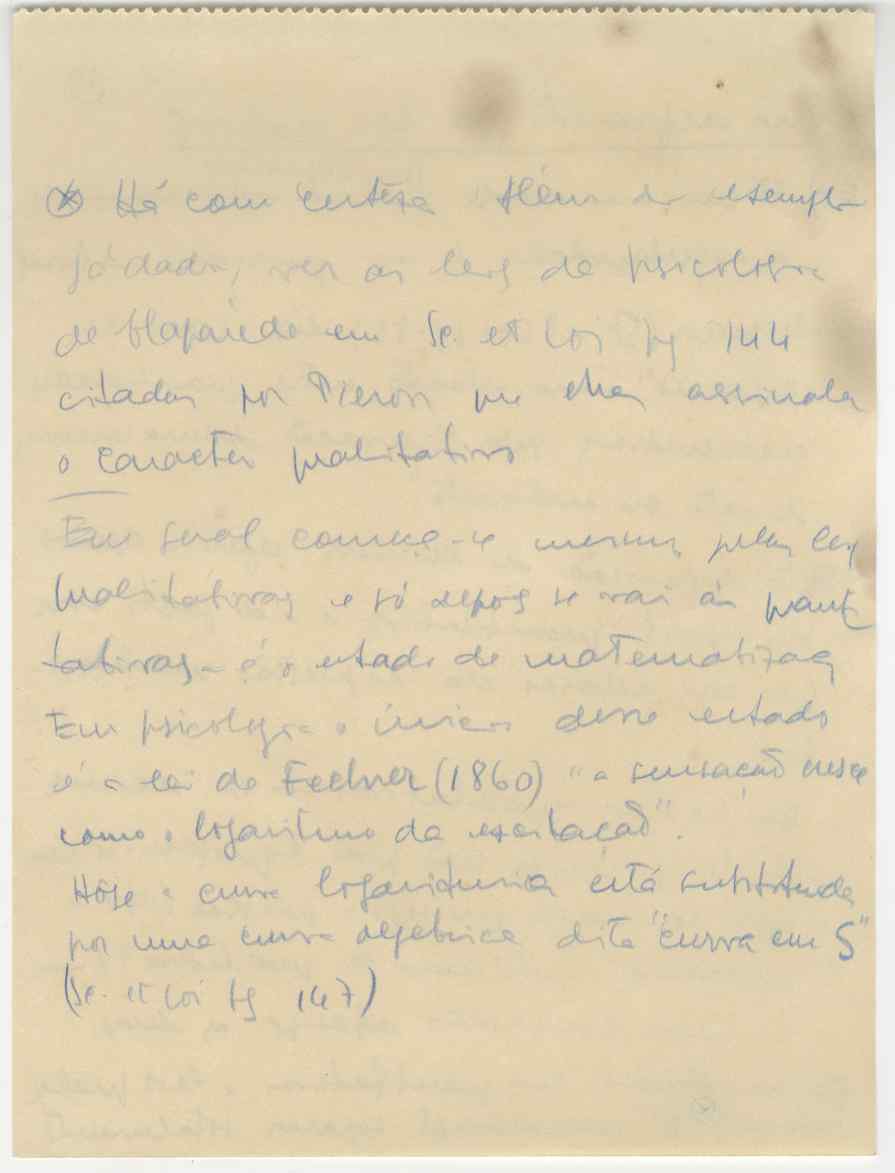 Há com certeza Além do exemplo
já dado, ver as leis de psicologia
de Claparède em Sc. et Loi pg 144
citadas por Pieron que lhes assinala
o caracter qualitativo
Em geral começa-se mesmo pelas leis
qualitativas e só depois se vai ás quanti
tativas - é o estado de matematizaç
Em psicologia o início desse estado
é a lei de Fechner (1860) "a sensação cresce
como o logaritmo da excitação".
Hoje a curva logaritmica está substituida
por uma curva algebrica dita "curva em S"
(Sc. et Loi pg 147)